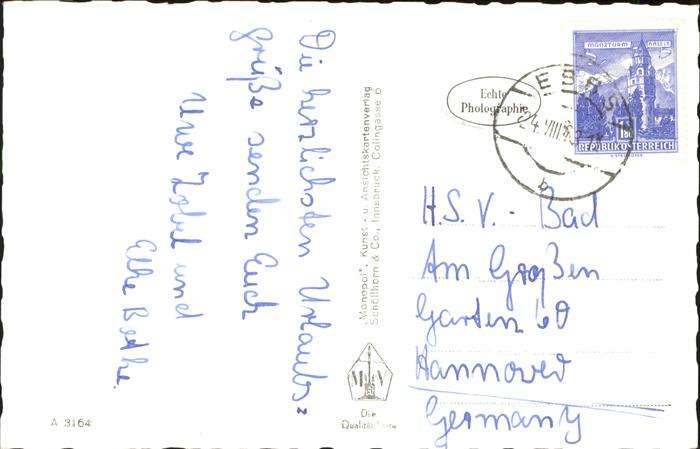 Die herzlichsten Urlaubs=
grüße senden Euch
Uwe Zobel und
Elke Bethe.
A 3164
„Monopol", Kunst- u. Ansichtskartenverlag
Schöllhorn & Co., Innsbruck, Colingasse 6
Die
Echte
Photographie
MÜNZTURM HALL I. T.
REPUBLIK ÖSTERREICH
24.VIII
b
H.S.V.- Bad
Am Großen
Garten 60
Hannover
Germany